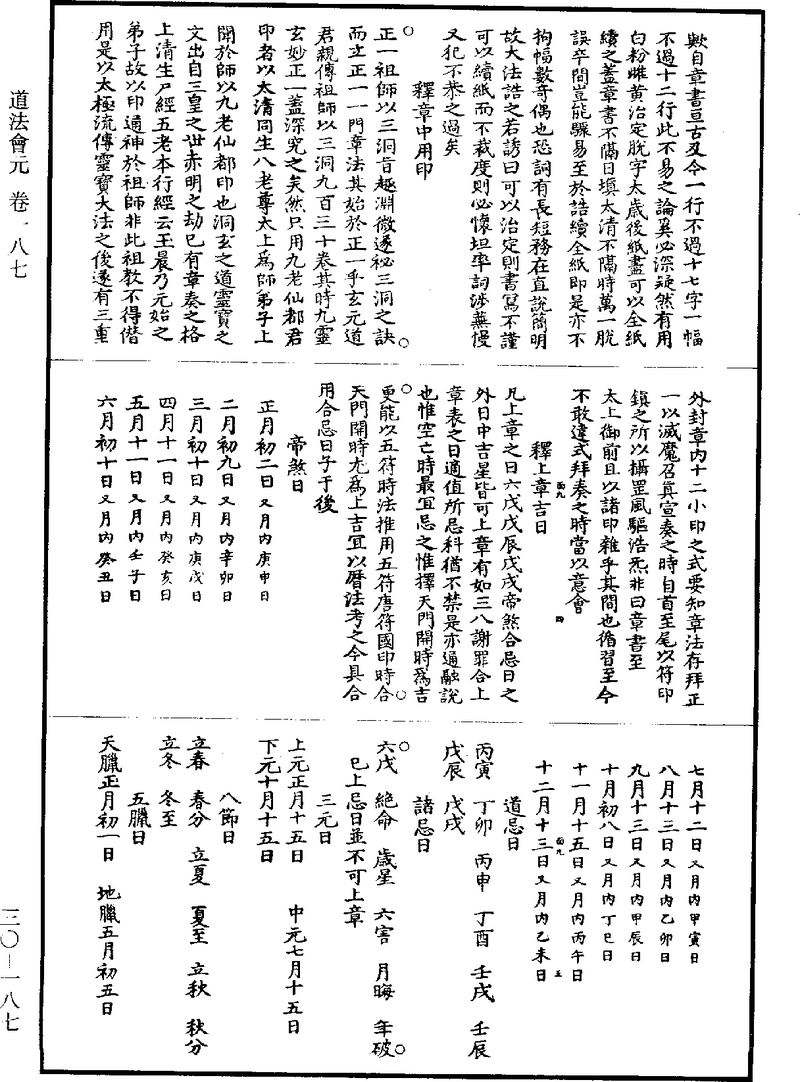 歟自章書亘古及今一行不過十七字一幅
不過十二行此不易之論奚必深疑然有用
白粉雌黃治定脫字太歲後紙盡可以全紙
續之蓋章書不隔日填太清不隔時萬一脫
誤卒間豈能驟易至於誥續全紙即是亦不
拘幅數奇偶也恐詞有長短務在直說簡明
故大法誥之若誘曰可以治定則書寫不謹
可以續紙而不裁度則必懷坦率詞涉蕪慢
又犯不恭之過矣
釋章中用印
正一祖師以三洞旨趣淵微邃祕三洞之訣
而立正一一門章法其始於正一乎玄元道
君親傳祖師以三洞九百三十卷其時九靈
玄妙正一蓋深究之矣然只用九老仙都君
印者以太清同生八老尊太上為師弟子上
關於師以九老仙都印也洞玄之道靈寶之
文出自三皇之世赤明之劫已有章奏之格
上清生尸經五老本行經云玉晨乃元始之
弟子故以印通神於祖師非此祖教不得僭
用是以太極流傳靈寶大法之後遂有三重
外封章內十二小印之式要知章法存拜正
一以滅魔召真宣奏之時自首至尾以符印
鎮之所以攝罡風驅浩炁非曰章書至
太上御前且以諸印雜乎其間也循習至今
不敢違式拜奏之時當以意會
釋上章吉日
凡上章之日六戊戊辰戊戌帝煞合忌日之
外日中吉星皆可上章有如三八謝罪合上
章表之日適值所忌科猶不禁是亦通融說
也惟空亡時最宜忌之惟擇天門開時為吉
更能以五符時法推用五符唐符國印時合
天門開時尤為上吉宜以曆法考之今具合
用合忌日子于後
帝煞日
正月初二日又月內庚申日
二月初九日又月內辛卯日
三月初十日又月內庚戌日
四月十一日又月內癸亥日
五月十一日又月內壬子日
六月初十日又月內癸丑日
七月十二日又月內甲寅日
八月十三日又月內乙卯日
九月十三日又月內甲辰日
十月初八日又月內丁巳日
十一月十五日又月內丙午日
十二月十三日又月內乙未日
道忌日
丙寅 丁卯 丙申 丁酉 壬戌 壬辰
戊辰 戊戌
諸忌日
六戊 絕命 歲星 六害 月晦 年破
已上忌日並不可上章
三元日
上元正月十五日 中元七月十五日
下元十月十五日
八節日
立春 春分 立夏 夏至 立秋 秋分
立冬 冬至
五臘日
天臘正月初一日 地臘五月初五日
道法會元 卷一八七
三〇—一八七